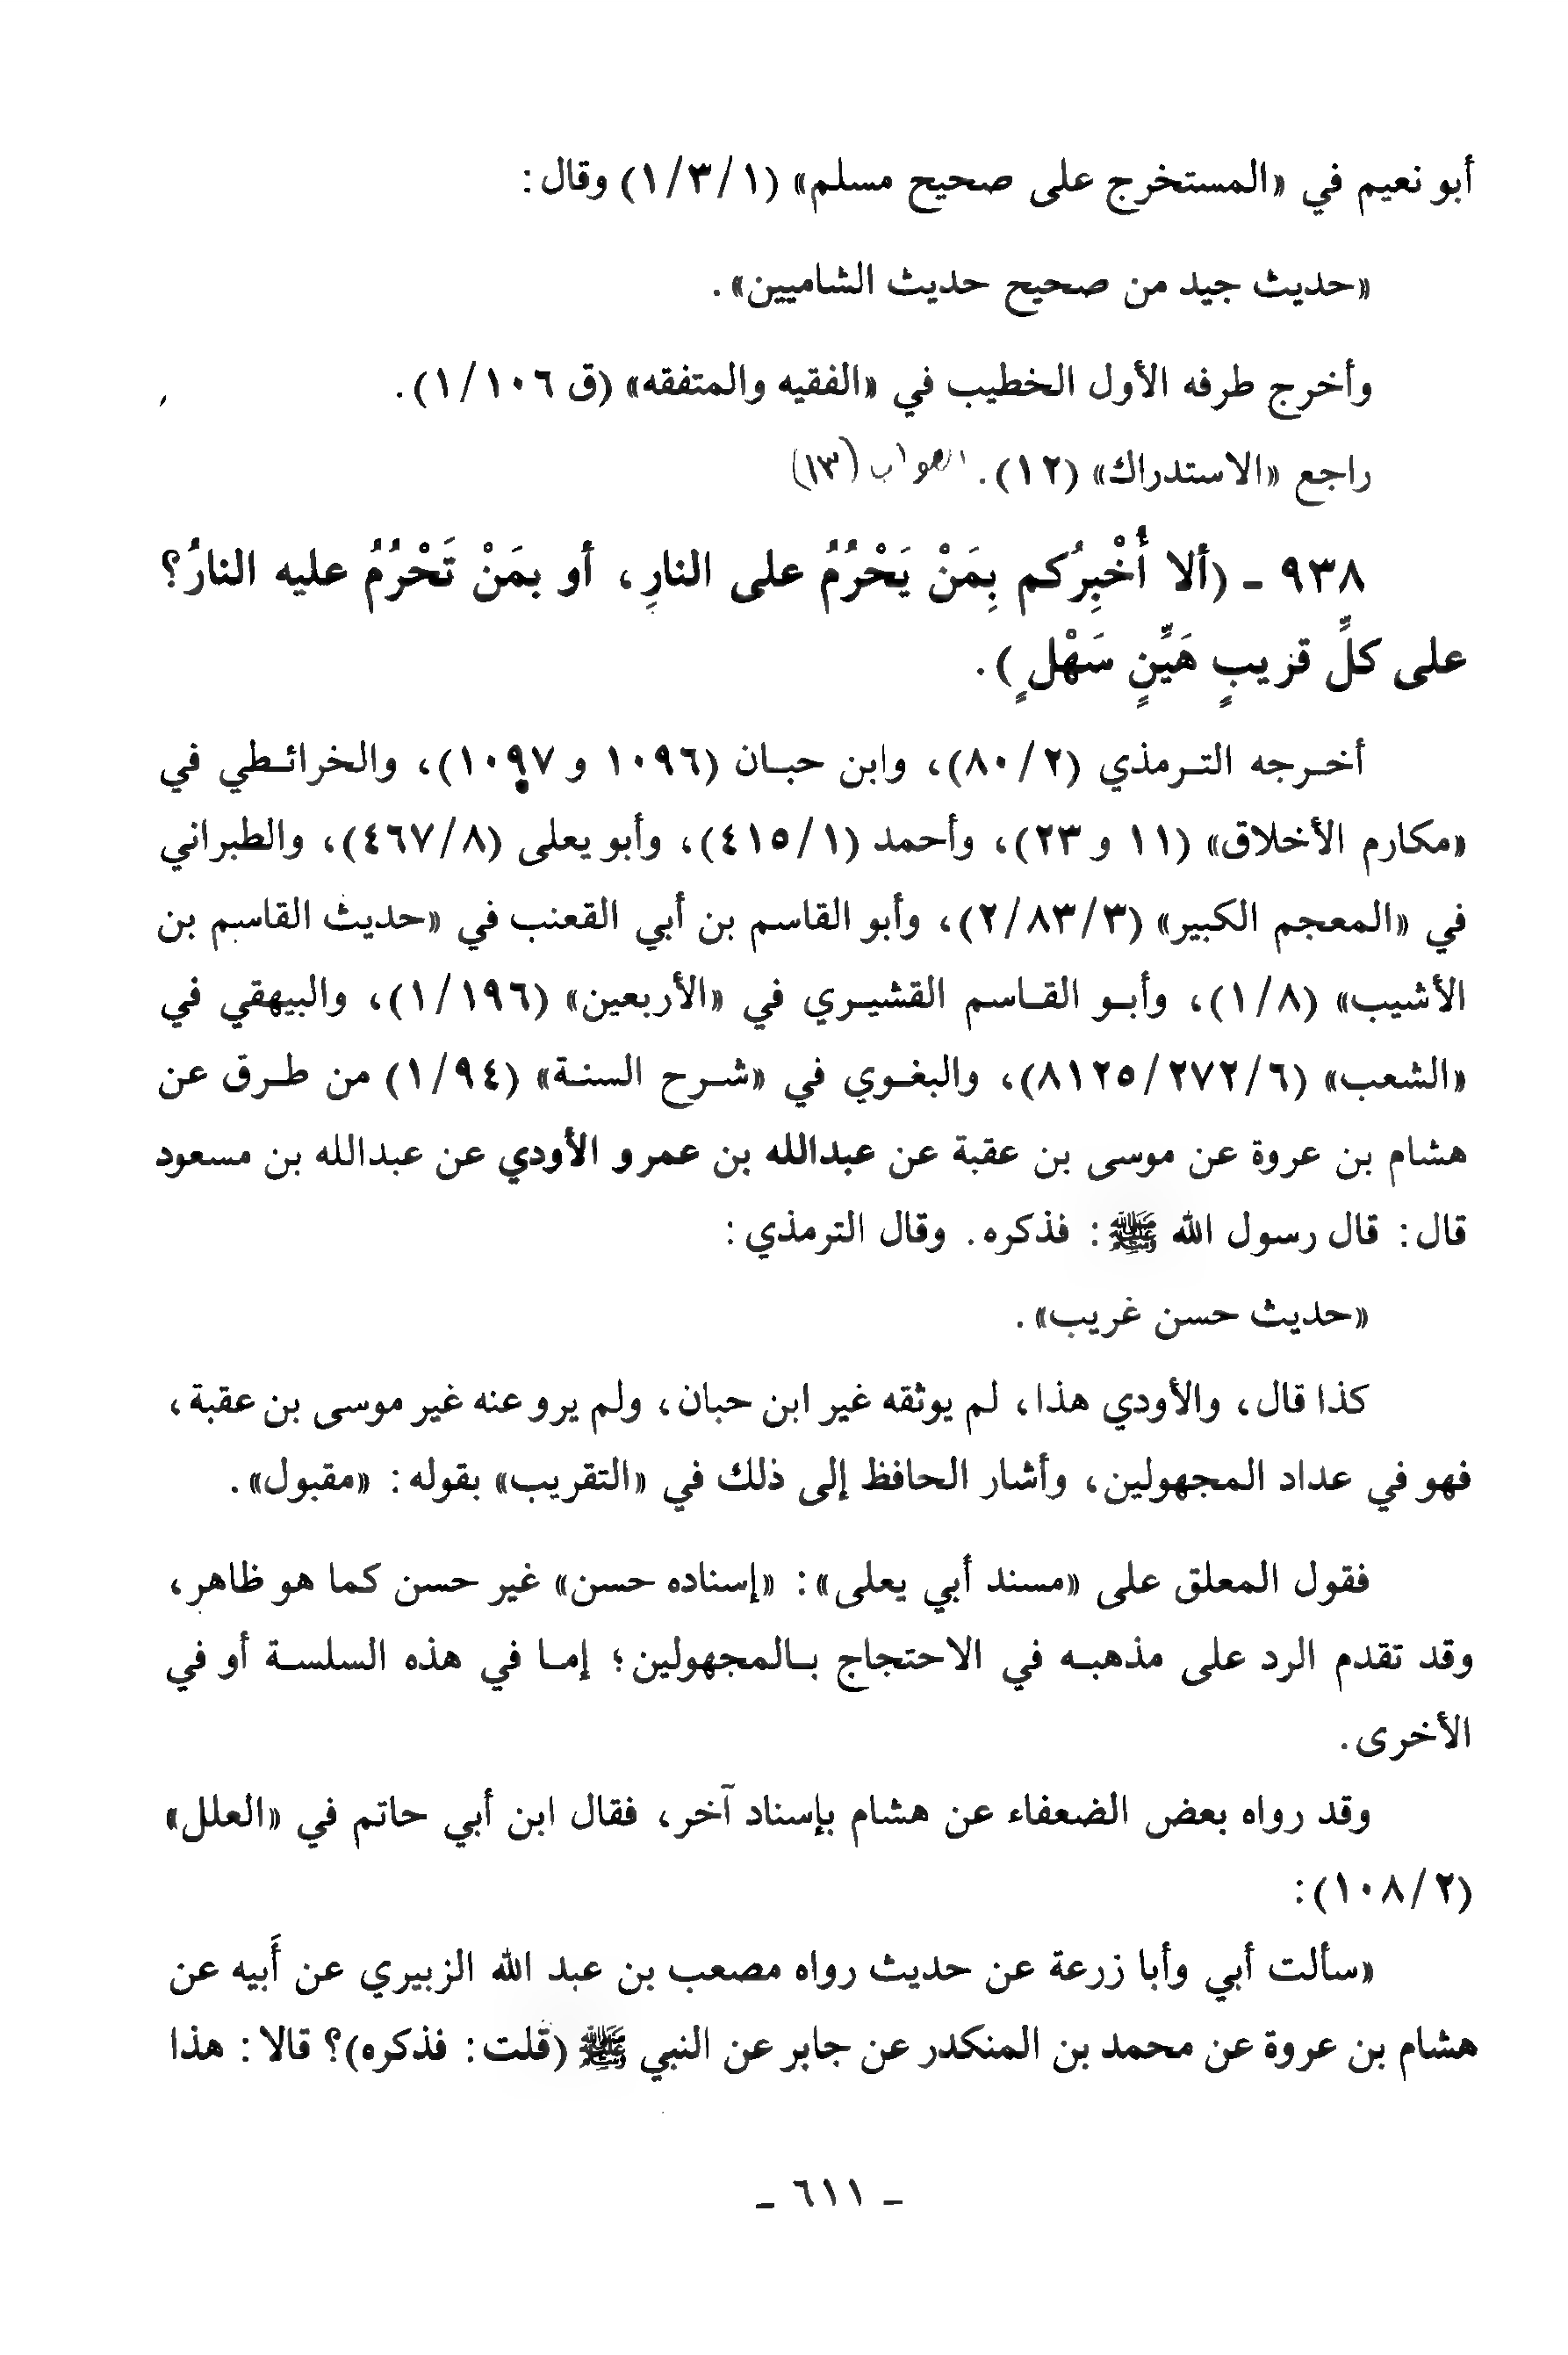 أبو نعيم في «المستخرج على صحيح مسلم» (١/٣/١) وقال:
«حديث جيد من صحيح حديث الشاميين».
وأخرج طرفه الأول الخطيب في «الفقيه والمتفقه» (ق ١/١٠٦).
راجع «الاستدراك» (١٢). الصواب (١٣)
٩٣٨ ـ (ألا أُخْبِرُكم بِمَنْ يَحْرُمُ على النارِ، أو بمَنْ تَحْرُمُ عليه النارُ؟
على كلِّ قريبٍ هَيِّنٍ سَهْلٍ).
أخـرجه التـرمذي (٨٠/٢)، وابن حبـان (١٠٩٦ و ١٠٩٧)، والخرائـطي في
«مكارم الأخلاق» (١١ و ٢٣)، وأحمد (٤١٥/١)، وأبو يعلى (٤٦٧/٨)، والطبراني
في «المعجم الكبير» (٢/٨٣/٣)، وأبو القاسم بن أبي القعنب في «حديث القاسم بن
الأشيب» (١/٨)، وأبـو القـاسم القشيـري في «الأربعين» (١/١٩٦)، والبيهقي في
«الشعب» (٨١٢٥/٢٧٢/٦)، والبغـوي في «شـرح السنـة» (١/٩٤) من طـرق عن
هشام بن عروة عن موسى بن عقبة عن عبدالله بن عمرو الأودي عن عبدالله بن مسعود
قال: قال رسول الله ﷺ: فذكره. وقال الترمذي:
«حديث حسن غريب».
كذا قال، والأودي هذا، لم يوثقه غير ابن حبان، ولم يرو عنه غير موسى بن عقبة،
فهو في عداد المجهولين، وأشار الحافظ إلى ذلك في «التقريب» بقوله: «مقبول».
فقول المعلق على «مسند أبي يعلى»: «إسناده حسن» غير حسن كما هو ظاهر،
وقد تقدم الرد على مذهبـه في الاحتجاج بـالمجهولين؛ إمـا في هذه السلسـة أو في
الأخرى.
وقد رواه بعض الضعفاء عن هشام بإسناد آخر، فقال ابن أبي حاتم في «العلل»
(١٠٨/٢):
«سألت أبي وأبا زرعة عن حديث رواه مصعب بن عبد الله الزبيري عن أَبيه عن
هشام بن عروة عن محمد بن المنكدر عن جابر عن النبي ﷺ (قلت: فذكره)؟ قالا: هذا
ـ ٦١١ ـ